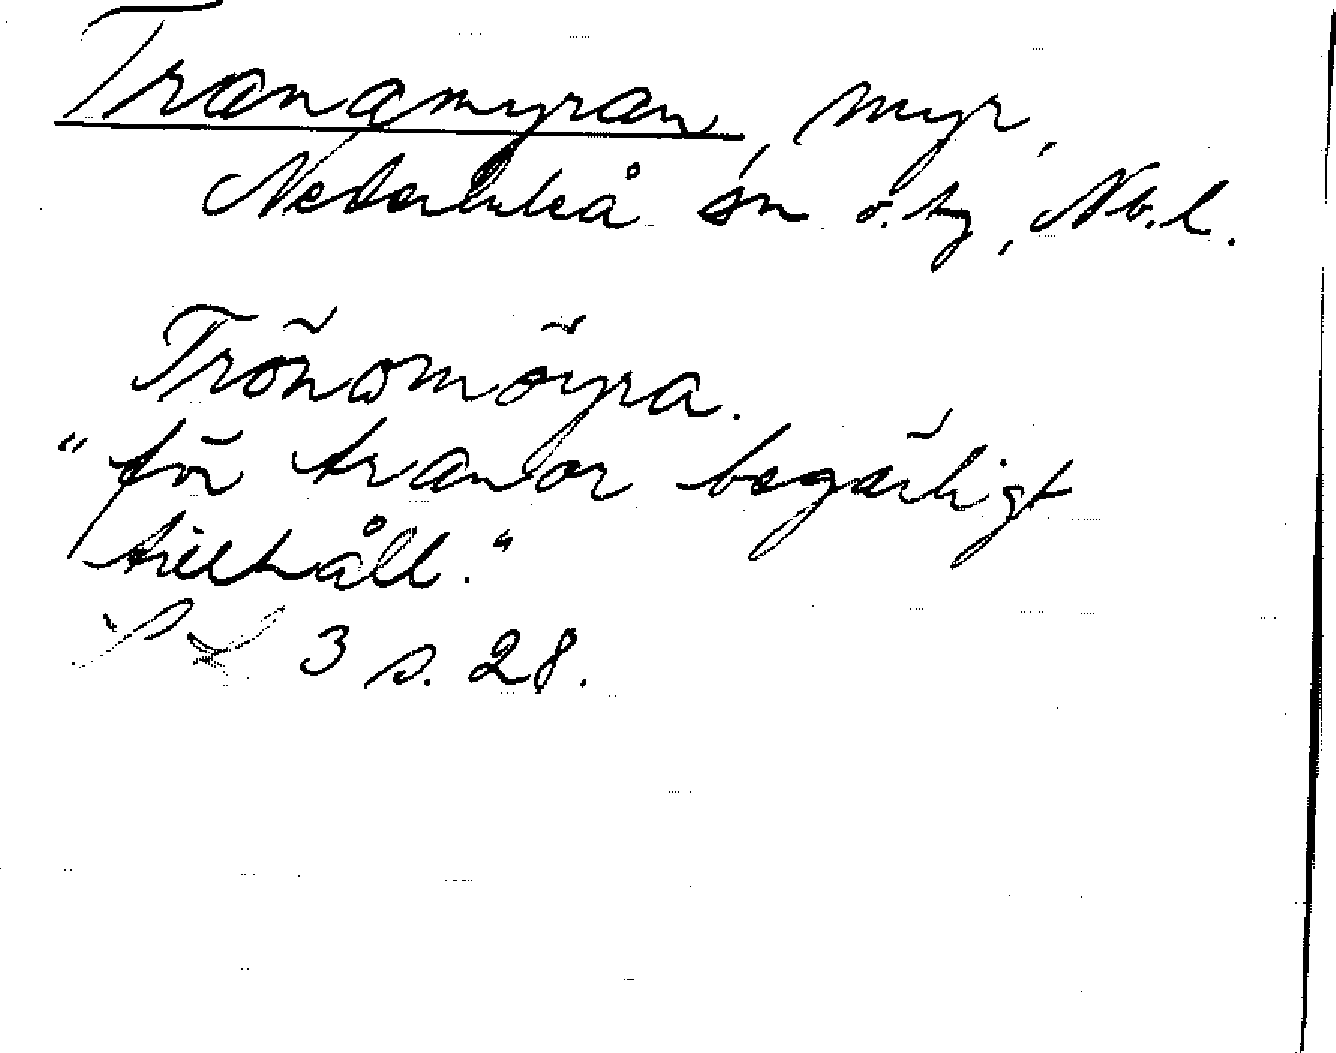 Tranamyran, myr,
Nederluleå sn o. hg, Nb. l.
Trönomöyra.
"för tranor begärligt
tillhåll."
3 s. 28.